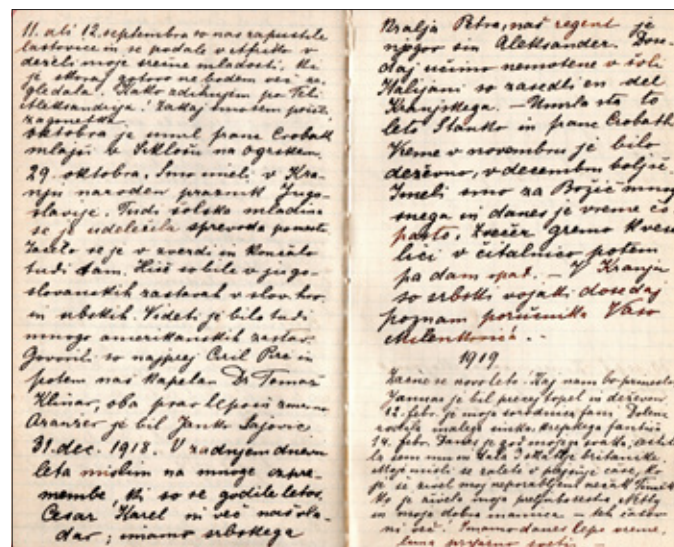 11. ali 12. septembra so nas zapustile
lastovice in se podale v Afriko v
deželi moje srečne mladosti, ki
je skoraj gotovo ne bodem več za-
gledala. Kako zdihujem po Tebi
Aleksandrija! Zakaj smo sem prišli,
zagonetka.
oktobra je umrl franc Crobath
mlajši v Siklošu na Ogrskem.
29. oktobra. Smo imeli v Kra-
nju naroden praznik Jugo-
slavije. Tudi šolska mladina
se je udeležila sprevoda po mestu.
Začelo se je v zvezdi in končalo
tudi tam. Hiše so bile v jugo-
slovanskih zastavah v slov. hrv.
in srbskih. Videti je bilo tudi
mnogo amerikanskih zastav.
Govorili so najprej Ciril Pirc in
potem naš kapelan Dr Tomaž
Klinar, oba prav lepo in
Aranžer je bil Janko Sajovic
31. dec. 1918. V zadnjem dnevu
leta mislim na mnoge izpre-
membe, ki so se godile letos.
Cesar Karel ni več naš vla-
dar; imamo srbskega
Kralja Petra, naš regent je
njegov sin Aleksander. Dose-
daj učimo nemoteno v šoli
Italijani so zasedli en del
Kranjskega. – Umrla sta to
leto Stanko in franc Crobath.
Vreme v novembru je bilo
deževno, v decembru boljše.
Imeli smo za Božič mnogo
snega in danes je vreme
pusto. Zvečer gremo k vese-
lici v čitalnico potem
pa dam spat. – V Kranju
so srbski vojaki dosedaj
poznam poručnika Vaso
Milenkovića. –
1919
Začne se novo leto! Kaj nam bo prineslo
Januar je bil precej topel in deževen
12. febr. je moja sorodnica fani Dolenc
rodila malega sinka krepkega fantiča
14. febr. Danes je god mojega svaka,
le sem mu iz
Moje misli se zaleti v prejšnje čase, ko
je še živel moj nepozabljeni nečak
ko je živela moja preljuba sestra Netty
in moja dobra mamica – teh časov
ni več! Imamo danes lepo vreme,
luna prijazno sveti –